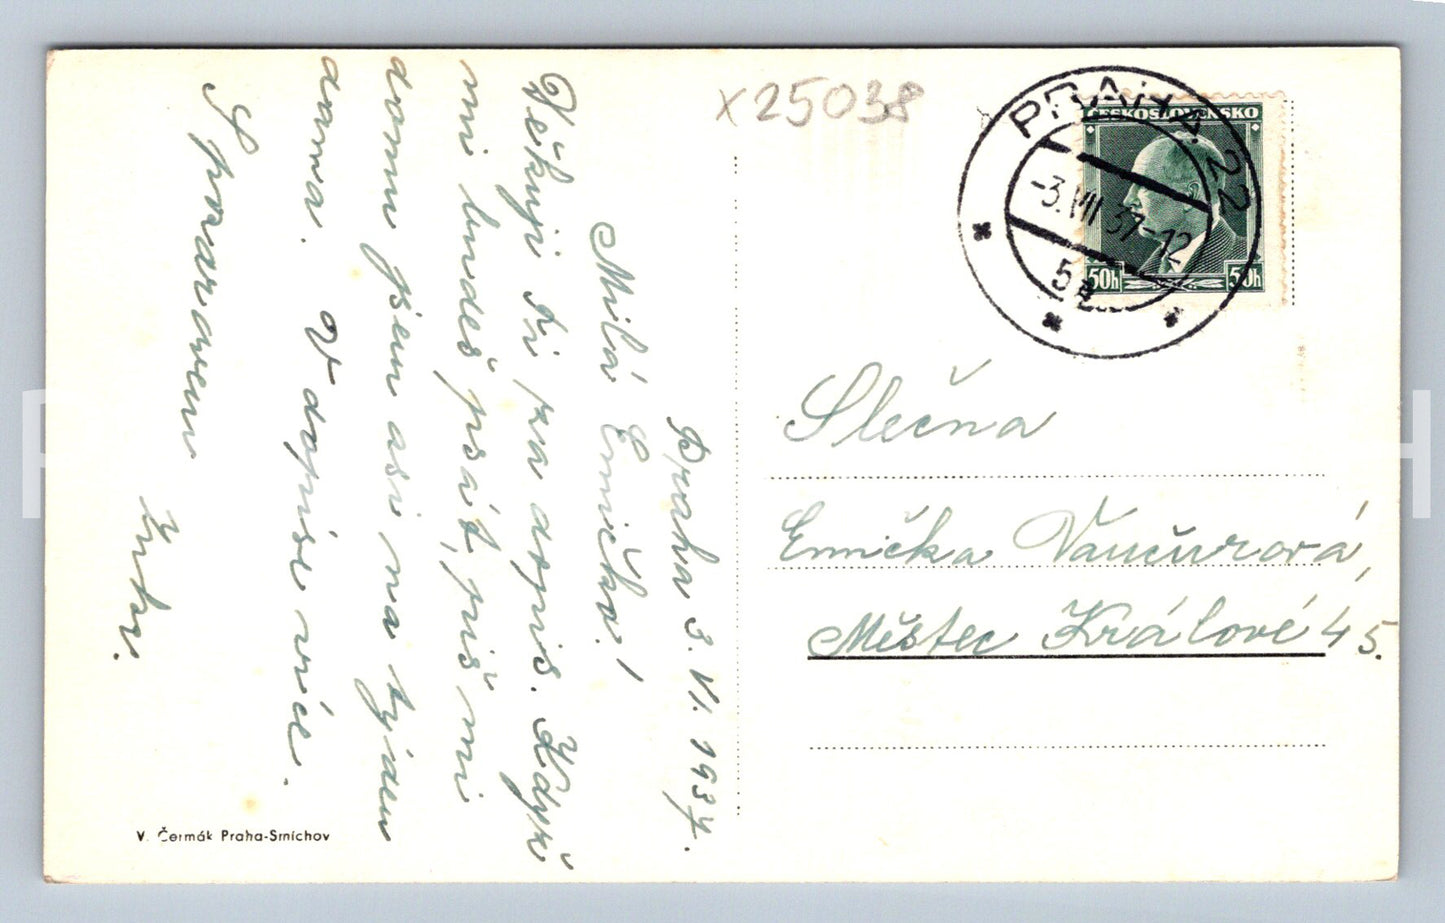 x25038
PRAHA 22
-3.VII 37-12
5a
ČESKOSLOVENSKO
50h 50h
Praha 3. VI. 1937.
Milá Emičko!
Děkuji Ti za dopis. Když
mi budeš psát, piš mi
domu jsem asi na týden
doma. V dopise více.
S pozdravem
Slečna
Emička Vančurová,
Městec Králové 45.
V. Čermák Praha-Smíchov